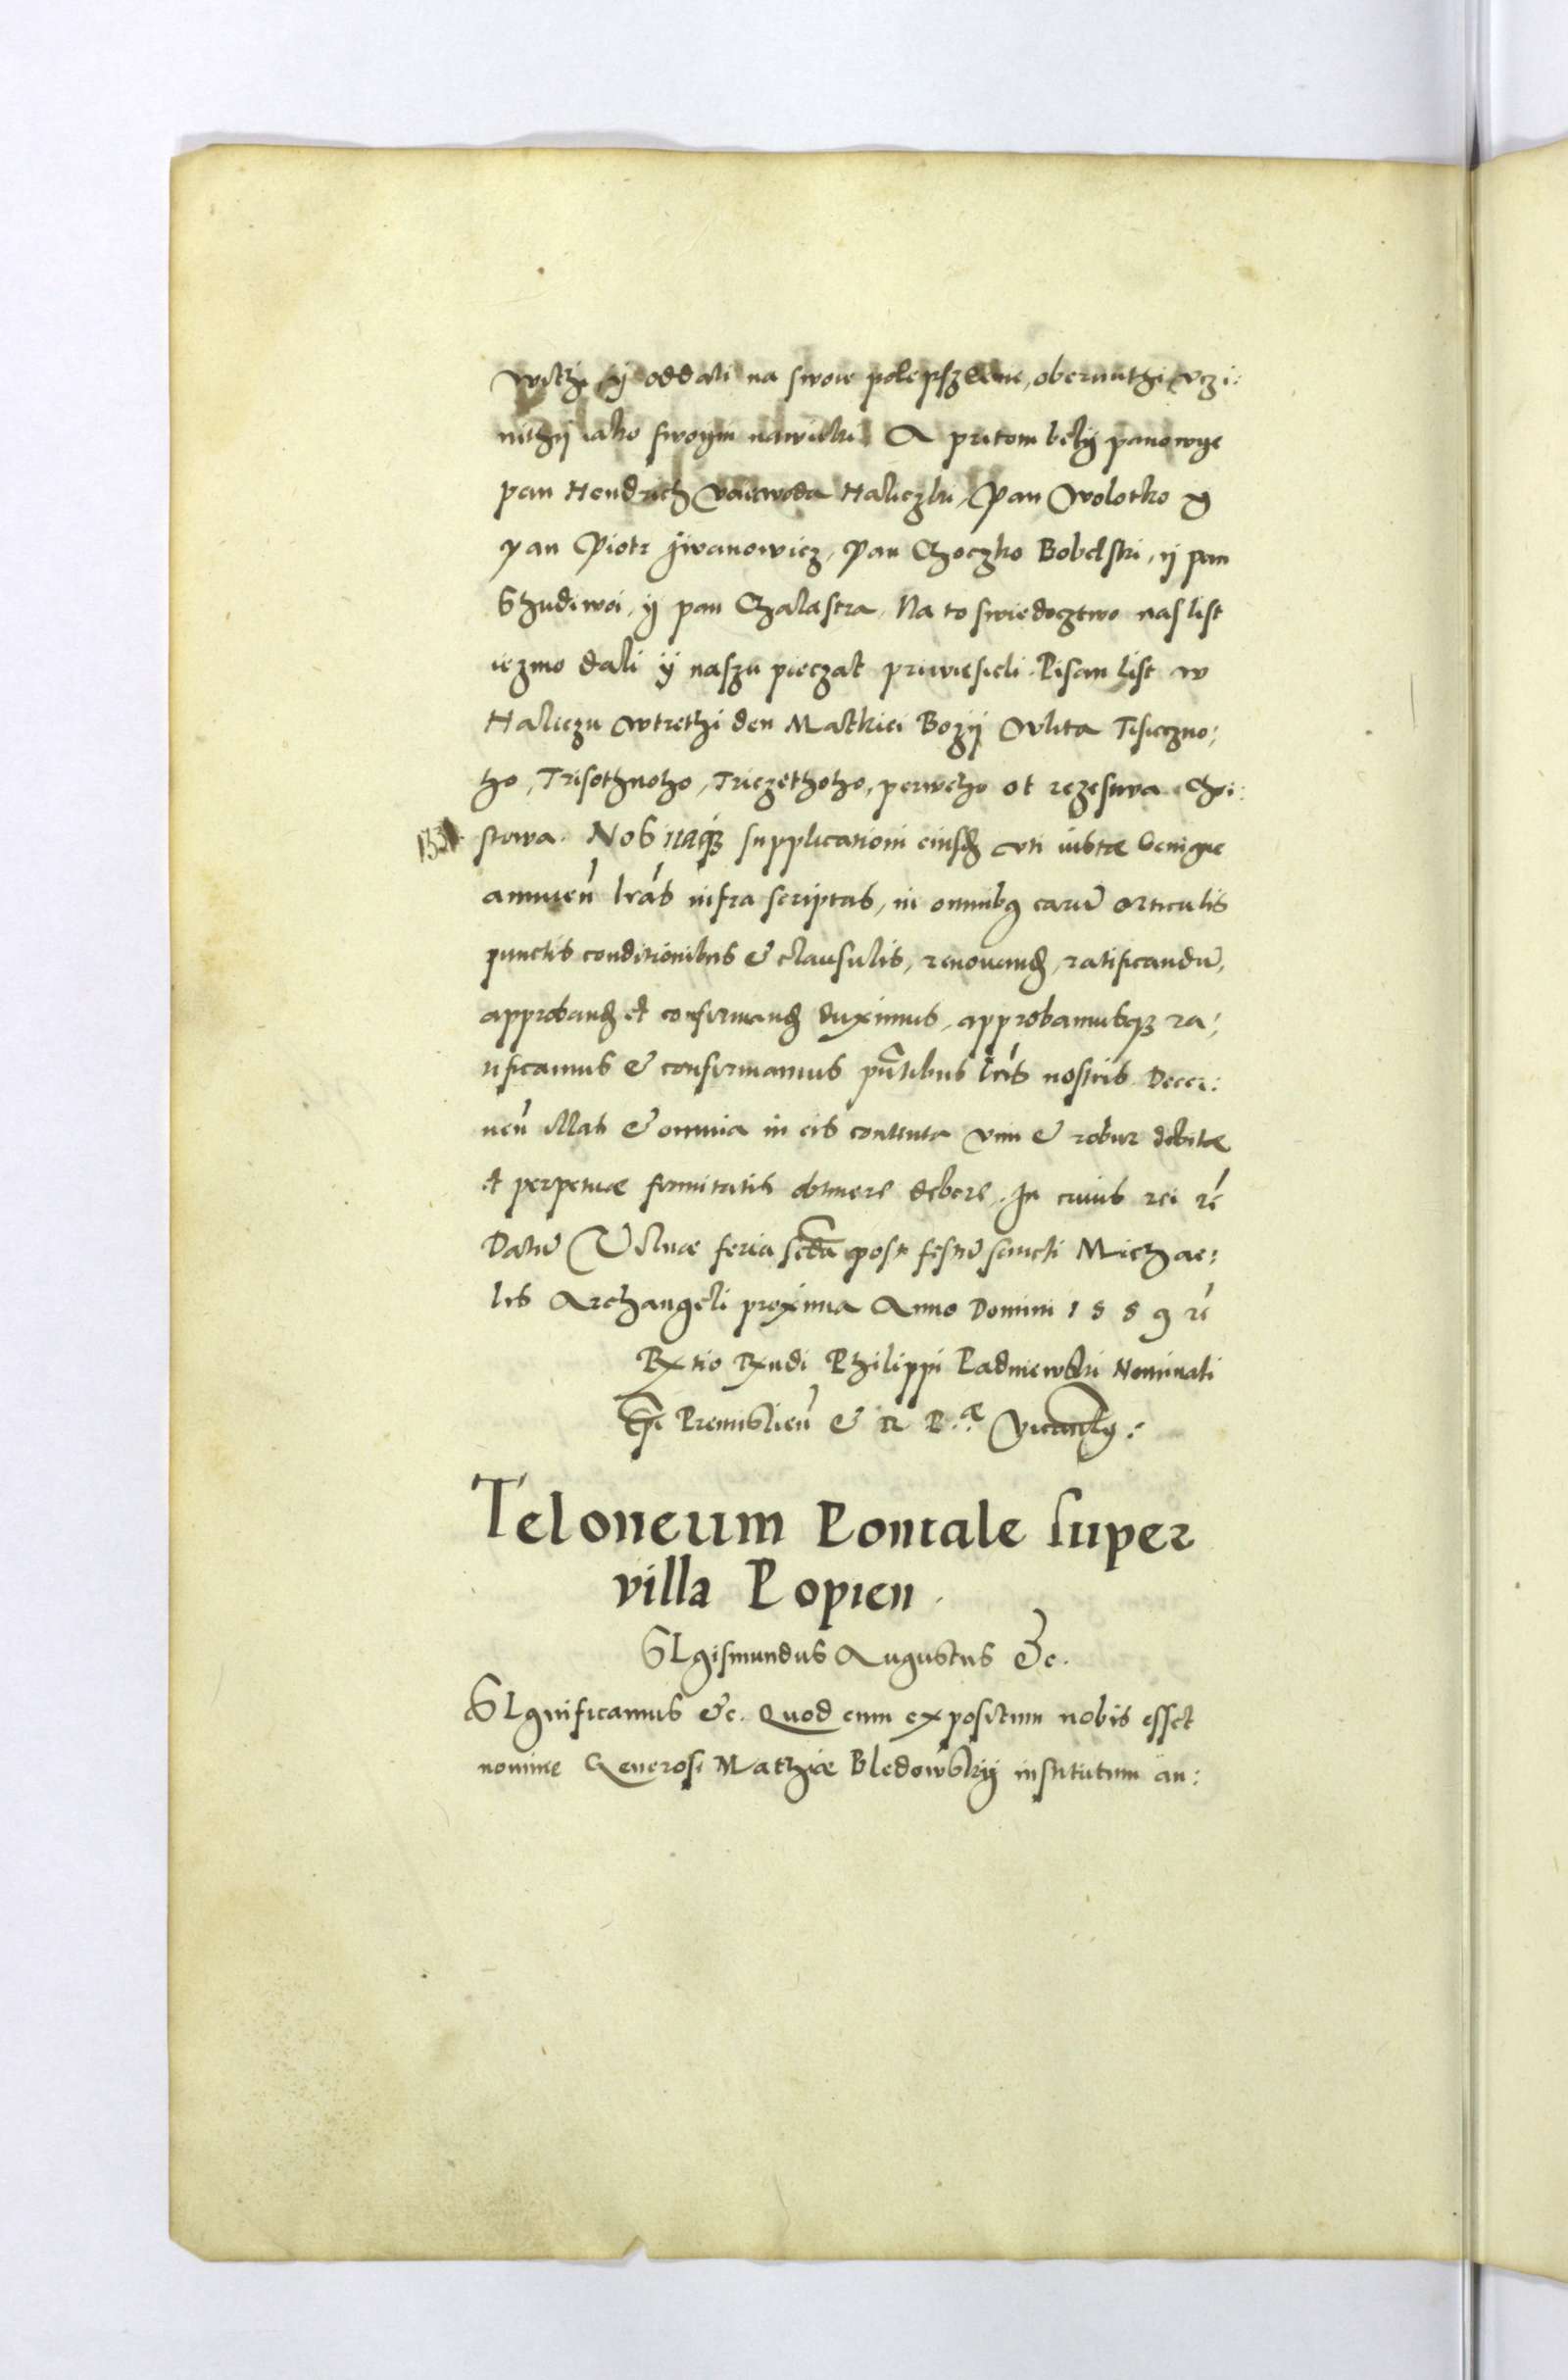 y oddali na swoie polepszene, obernuthi, vczi:
nithij iako swoijm nawieki A pritom belij panowye
pan Hendrich voiewoda Haliczki, Pan Wolotko y
pan Piotr Jwanowicz, Pan Choczko Bobelski, ij pan
Sthudiwoi, ij pan Chalastra. Na to swiedocztwo nas list
iezmo dali ij naszu pieczat priwiesieli. Pisan list w
Haliczu wtrethi den Matkiei Bozij Wlita Tisieczno:
ho, Trisothnoho, Triczethoho, perweho ot rozestwa Chri:
stowa. NoS itaq supplicationi eiusd uti iustae benigne
annuen lras infra scriptas, in omnibq earu articulis
punctis conditionibus & clausulis, renouand, ratificandu,
approband et confirmand duximus, approbamusq ra:
tificamus & confirmamus pntibus lris nostris. Decer:
nen illas & omnia in eis contenta vim & robur debitae
et perpetuae firmitatis obtinere debere. In cuius rei rẽ
Datu Vilnae feria scda post festu sancti Michae:
lis Archangeli proxima Anno Domini 1559 rẽ
Rx tio Rx ndi Philippi Padniewski Nominati
Epi Premislien & R P. ae Vicancelg:
Teloneum Pontale super
villa Popien.
SIgismundus Augustus &c.
SIgnificamus &c. Quod cum expositum nobis esset
nomine Generosi Mathiae Bledowskij institutum an: